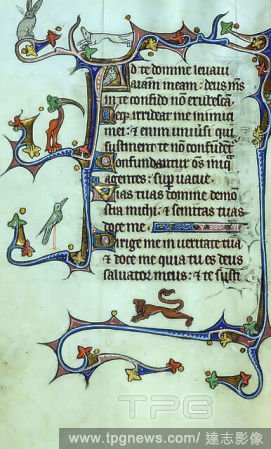 Ad te domine levavi
aiam meam: deus ms
in te confido nō erubescā
Neqz irrideāt me inimici
mei: & enim uniūsi qui
sustinent te nō confūdent᷑
Confundantur oīs iniq̄
agentes: sup̄ vacue.
Vias tuas domine demō
stra michi: & semitas tuas
doce me.
Dirige me in ueritate tua
& doce me quia tu es deus
salvator meus: & te susti
TPG
www.tpgnews.com/達志影像